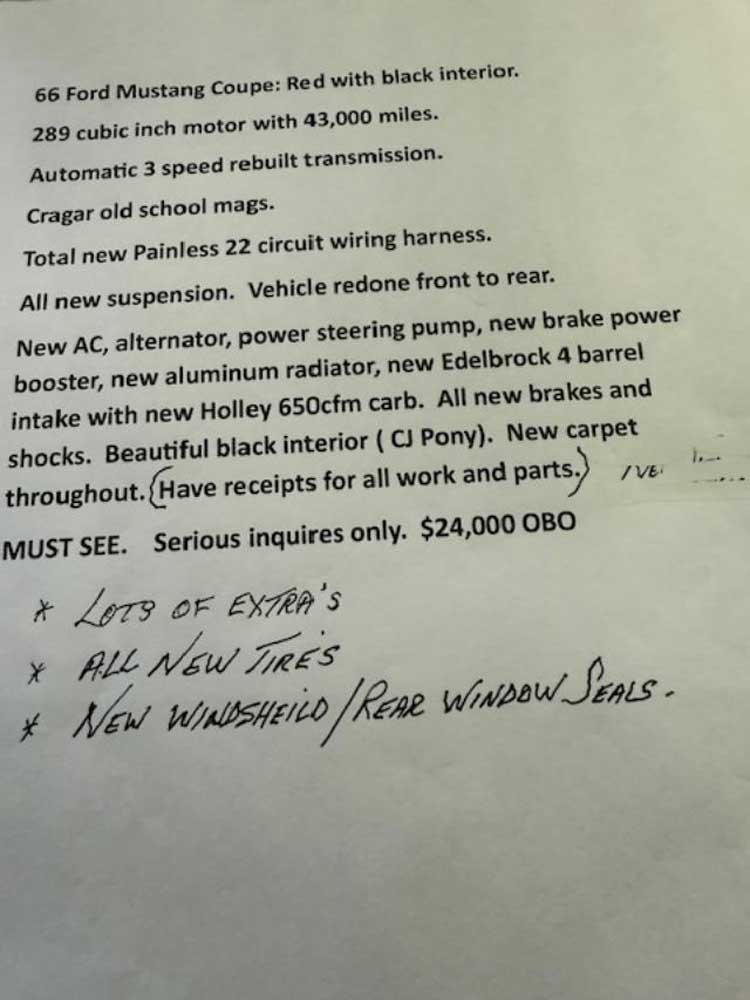 66 Ford Mustang Coupe: Red with black interior.
289 cubic inch motor with 43,000 miles.
Automatic 3 speed rebuilt transmission.
Cragar old school mags.
Total new Painless 22 circuit wiring harness.
All new suspension.  Vehicle redone front to rear.
New AC, alternator, power steering pump, new brake power
booster, new aluminum radiator, new Edelbrock 4 barrel
intake with new Holley 650cfm carb.  All new brakes and
shocks.  Beautiful black interior ( CJ Pony).  New carpet
throughout. (Have receipts for all work and parts.)
MUST SEE.   Serious inquires only.  $24,000 OBO
* LOTS OF EXTRA'S
* ALL NEW TIRE'S
* NEW WINDSHEILD/REAR WINDOW SEALS.